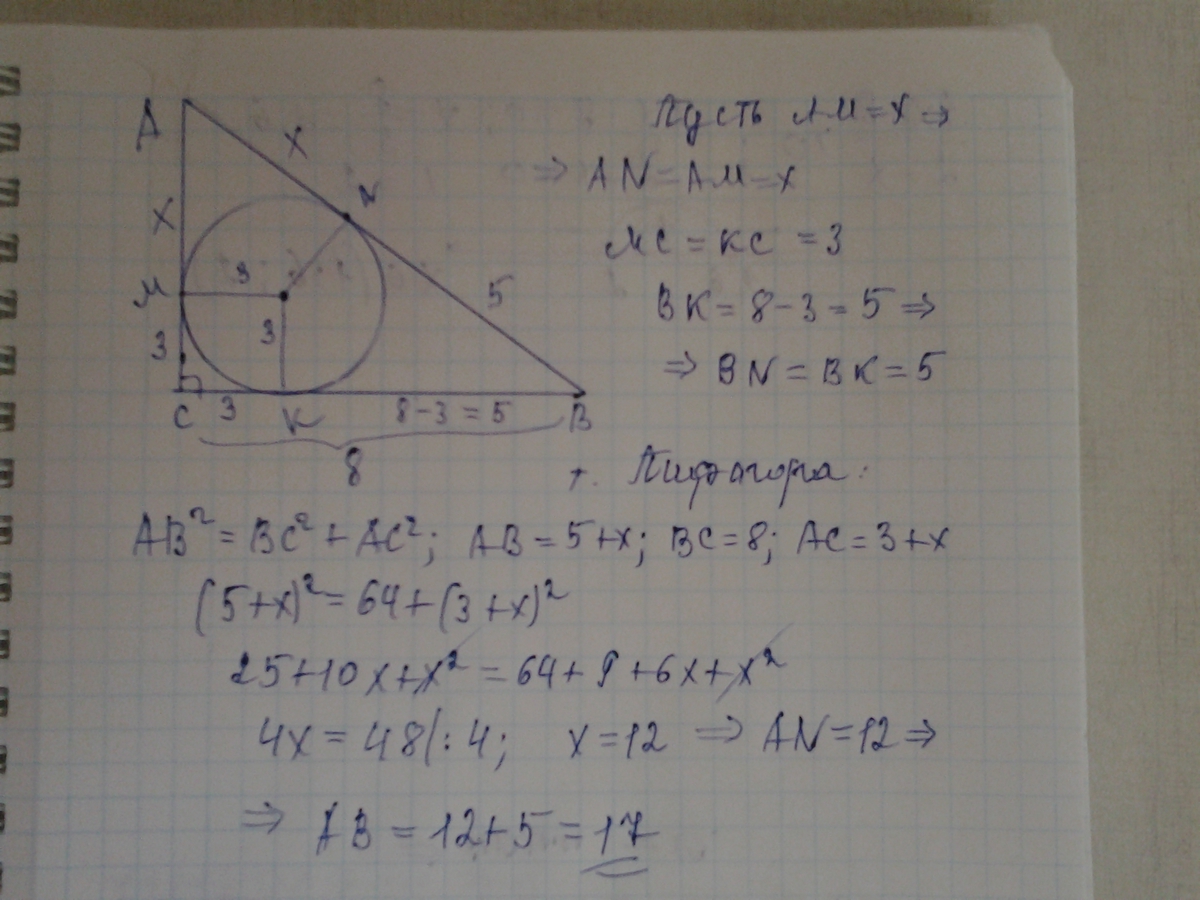 A
x
N
Пусть AM = x ⇒
⇒ AN = AM = x
x
MC = KC = 3
M
3
5
BK = 8 - 3 = 5 ⇒
3
3
⇒ BN = BK = 5
C
3
K
8 - 3 = 5
B
8
т. Пифагора:
AB² = BC² + AC²; AB = 5+x; BC = 8; AC = 3+x
(5+x)² = 64 + (3+x)²
25 + 10x + x² = 64 + 9 + 6x + x²
4x = 48 |: 4; x = 12 ⇒ AN = 12 ⇒
⇒ AB = 12 + 5 = 17